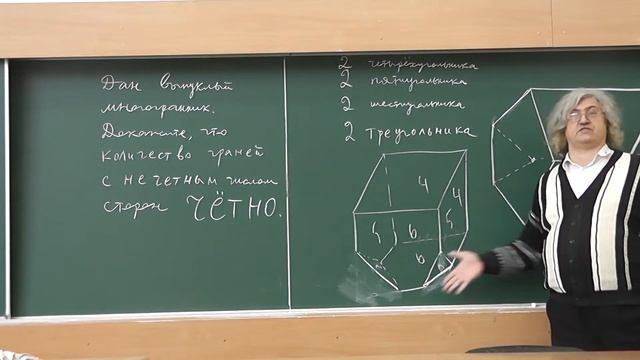 Дан выпуклый
многогранник.
Докажите, что
количество граней
с нечетным числом
сторон ЧЁТНО.
2 четырёхугольника
2 пятиугольника
2 шестиугольника
2 треугольника
4
4
5
6
5
6